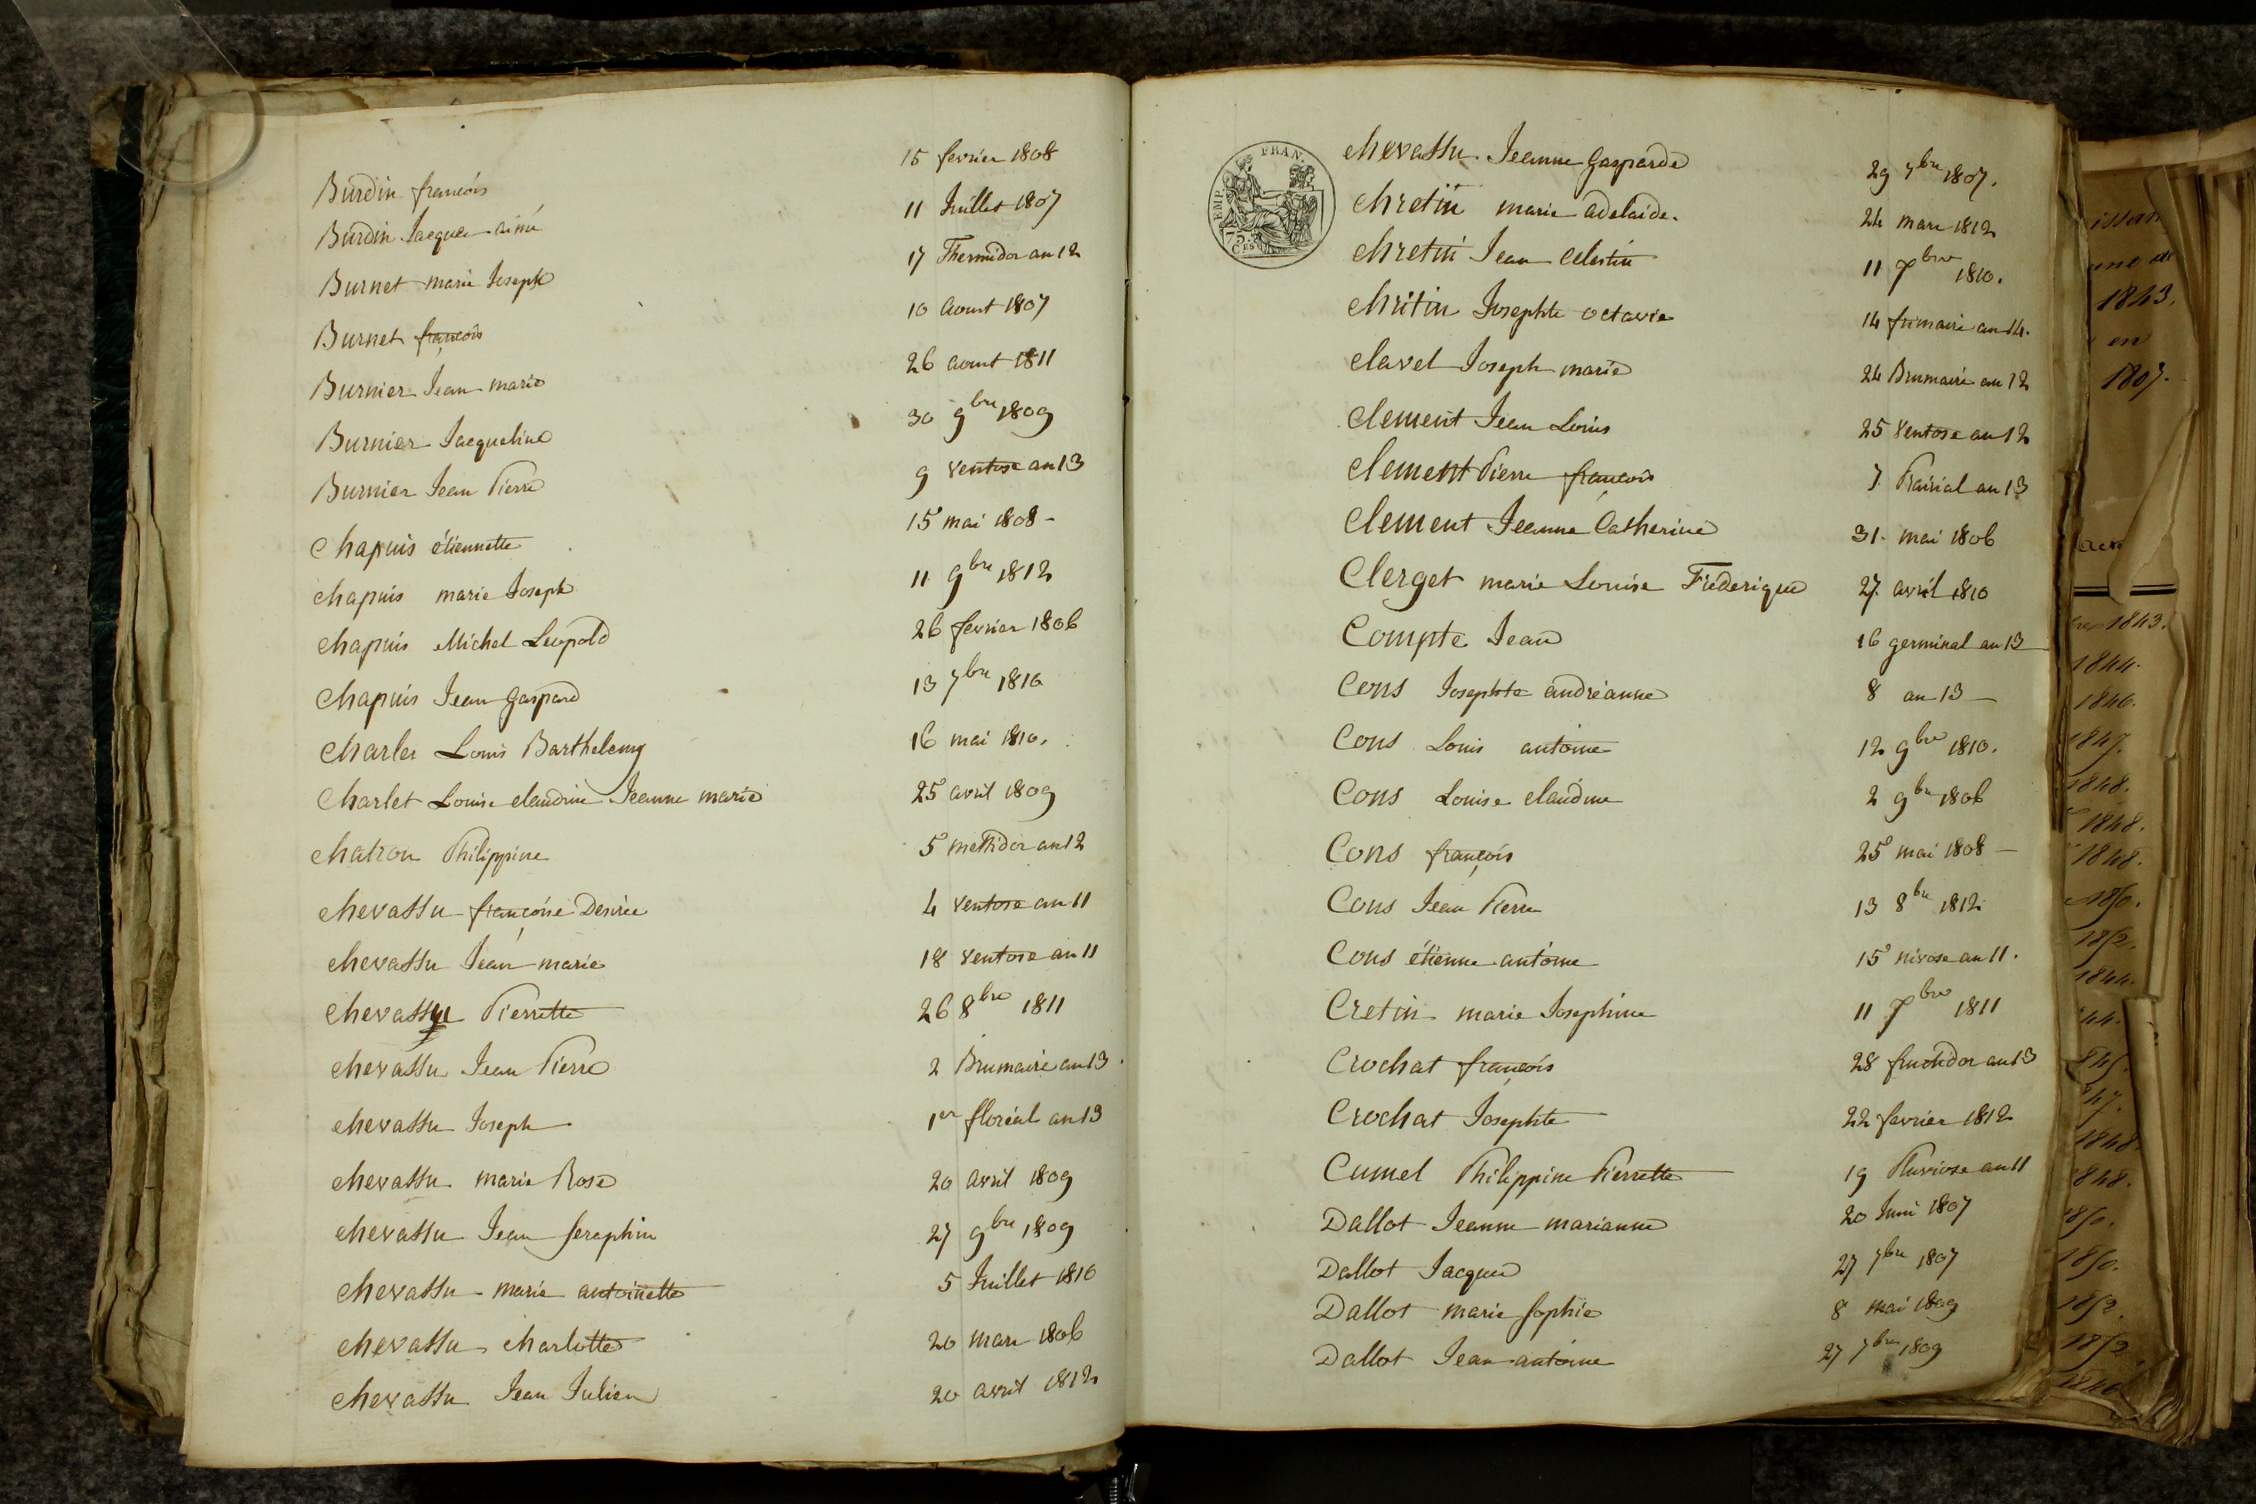 Burdin françois 15 fevrier 1808
Burdin Jacques aimé 11 Juillet 1807
Burnet marie Joseph 17 Thermidor an 12
Burnet françois 10 aoust 1807
Burnier Jean marie 26 aoust 1811
Burnier Jacqueline 30 9bre 1809
Burnier Jean Pierre 9 ventose an 13
Chapuis étiennette 15 mai 1808 -
Chapuis marie Joseph 11 9bre 1812
Chapuis Michel Leopold 26 fevrier 1806
Chapuis Jean gaspard 13 7bre 1810
Charles Louis Barthelemy 16 mai 1810.
Charlet Louise claudine Jeanne marie 25 avril 1809
Chatron Philippine 5 messidor an 12
Chevassu françoise Desirée 4 ventose an 11
Chevassu Jean marie 18 ventose an 11
Chevassu Pierrette 26 8bre 1811
Chevassu Jean Pierre 2 Brumaire an 13
Chevassu Joseph 1er floréal an 13
Chevassu marie Rose 20 avril 1809
Chevassu Jean seraphin 27 9bre 1809
Chevassu marie antoinette 5 Juillet 1810
Chevassu charlotte 20 mars 1806
Chevassu Jean Julien 20 avril 1812
EMP. FRAN.
75. CES
Chevassu Jeanne gasparde 29 7bre 1807.
Chretin marie adelaide. 24 mars 1812
Chretin Jean celestin 11 Xbre 1810.
Chritin Josephte octavie 14 frimaire an 14.
Clavel Joseph marie 24 Brumaire an 12
Clement Jean Louis 25 ventose an 12
Clement Pierre françois 7 Prairial an 13
Clement Jeanne Catherine 31. mai 1806
Clerget marie Louise Fréderique 27 avril 1810
Compte Jean 16 germinal an 13
Cons Josephte andréanne 8 an 13 -
Cons Louis antoine 12 9bre 1810.
Cons Louise claudine 2 9bre 1806
Cons françois 25 mai 1808 -
Cons Jean Pierre 13 8bre 1812
Cons étienne antoine 15 nivose an 11.
Cretin marie Josephine 11 Xbre 1811
Crochat françois 28 fructidor an 13
Crochat Josephte 22 fevrier 1812
Cumel Philippine Pierrette 19 Pluviose an 11
Dallot Jeanne marianne 20 Juin 1807
Dallot Jacques 27 7bre 1807
Dallot marie sophie 8 mai 1809
Dallot Jean antoine 27 7bre 1809
1843.
en
1807.
1843.
1844.
1846.
1847.
1848.
1848.
1848.
1850.
1852.
1844.
44.
845.
47.
1848.
1848.
1850.
1850.
1852.
1852